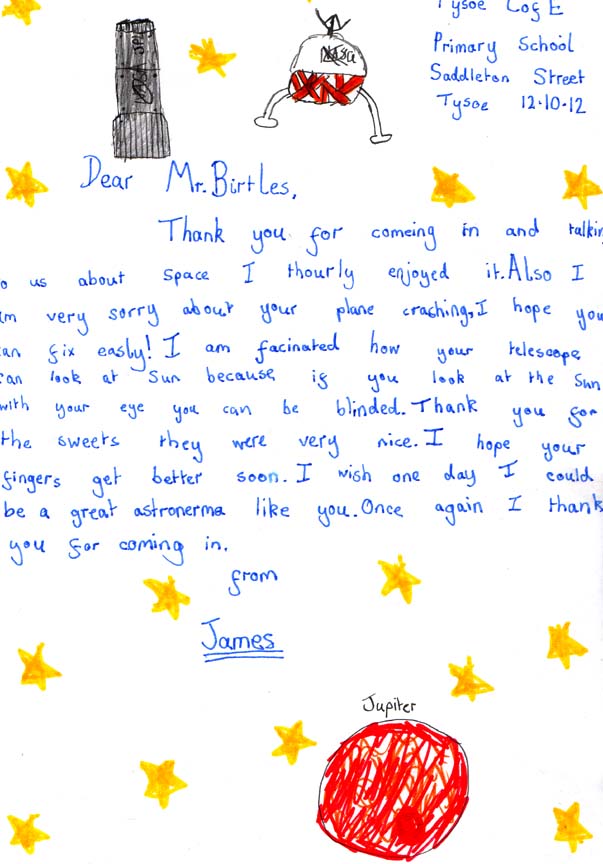 Tysoe CofE
Primary School
Saddleton Street
Tysoe 12.10.12
Dear Mr. Birtles,
Thank you for comeing in and talkin
o us about space I thourly enjoyed it. Also I
am very sorry about your plane crashing, I hope you
can fix easly! I am facinated how your telescope
can look at Sun because if you look at the Sun
with your eye you can be blinded. Thank you for
the sweets they were very nice. I hope your
fingers get better soon. I wish one day I could
be a great astronerma like you. Once again I thank
you for coming in.
from
James
Jupiter